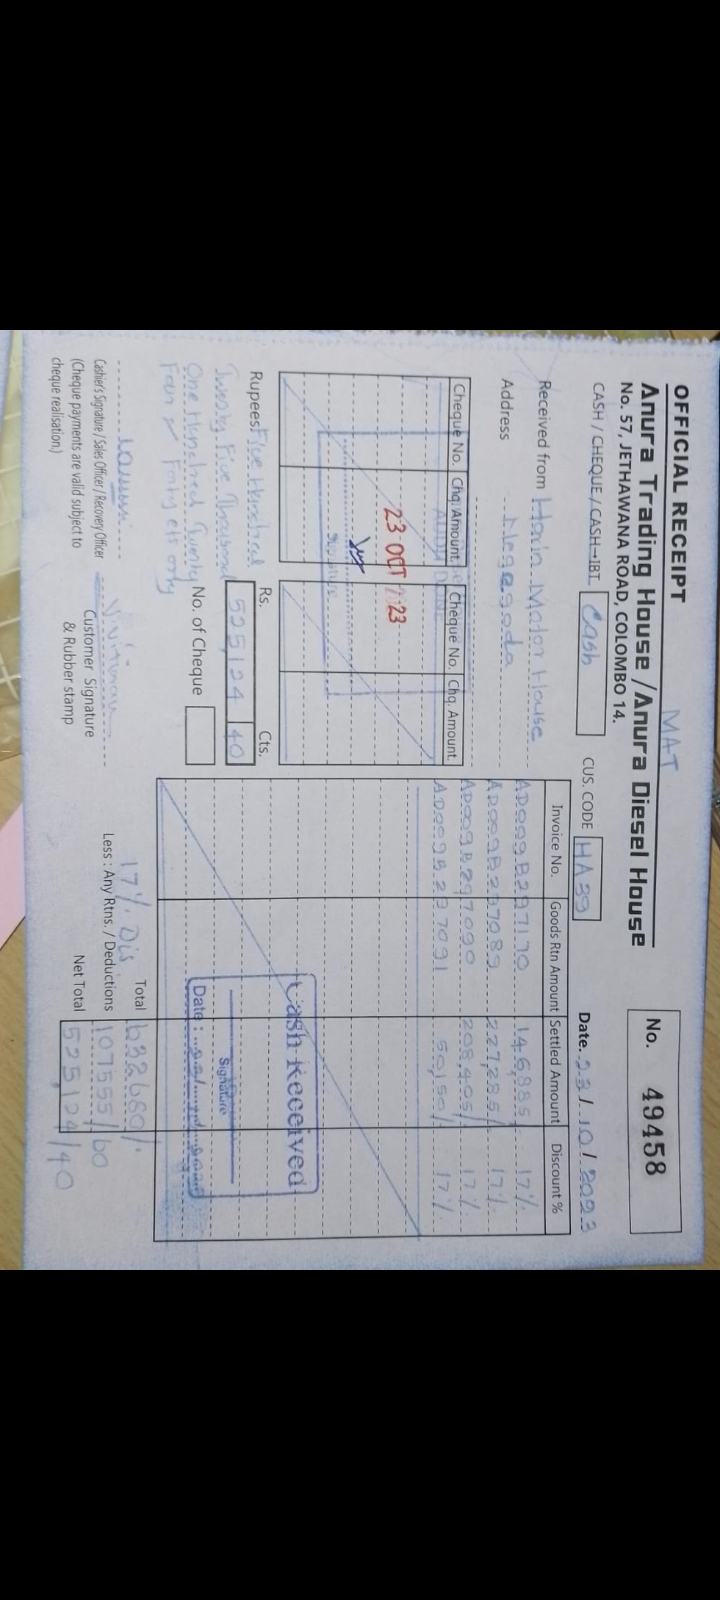 OFFICIAL RECEIPT
MAT
Anura Trading House / Anura Diesel House
No. 57, JETHAWANA ROAD, COLOMBO 14.
No. 49458
CASH / CHEQUE / CASH→IBT Cash
CUS. CODE HA39
Date. 23/10/2023
Received from Motor House
Address
Cheque No. Chq. Amount. Cheque No. Chq. Amount
23 OCT 23
Invoice No. Goods Rtn Amount Settled Amount Discount %
AD009B297170 146,885/. 17%.
AD009B297089 227,285/. 17%.
AD009B297090 208,405/. 17%.
AD009B297091 50,150/. 17%.
Cash Received
Signature
Date :
Rupees Five Hundred
Twenty Five Thousand
One Hundred Twenty
Four only
Rs. Cts.
525,124 40
No. of Cheque
Total 632680/.
17%. Dis
Less : Any Rtns. / Deductions 107555/60
Net Total 525,124/40
Cashier's Signature / Sales Officer / Recovery Officer
(Cheque payments are valid subject to
cheque realisation.)
Customer Signature
& Rubber stamp